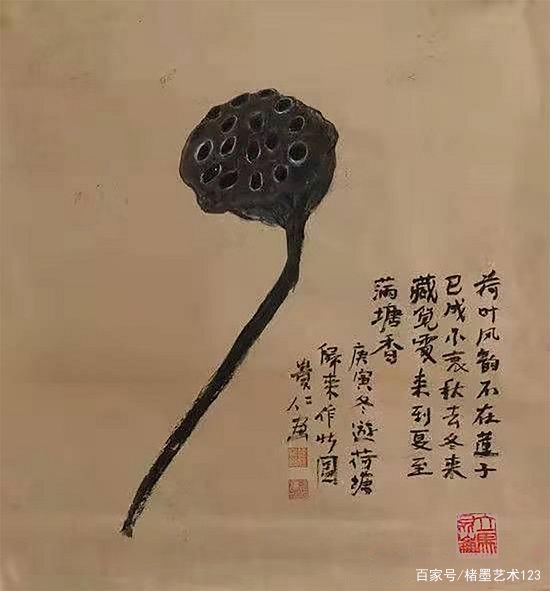 荷叶风韵不在莲子
已成不哀秋去冬来
藏来到夏至
满塘香
庚寅冬游荷塘
歸来作此圖
仁画
百家号/楮墨艺术123